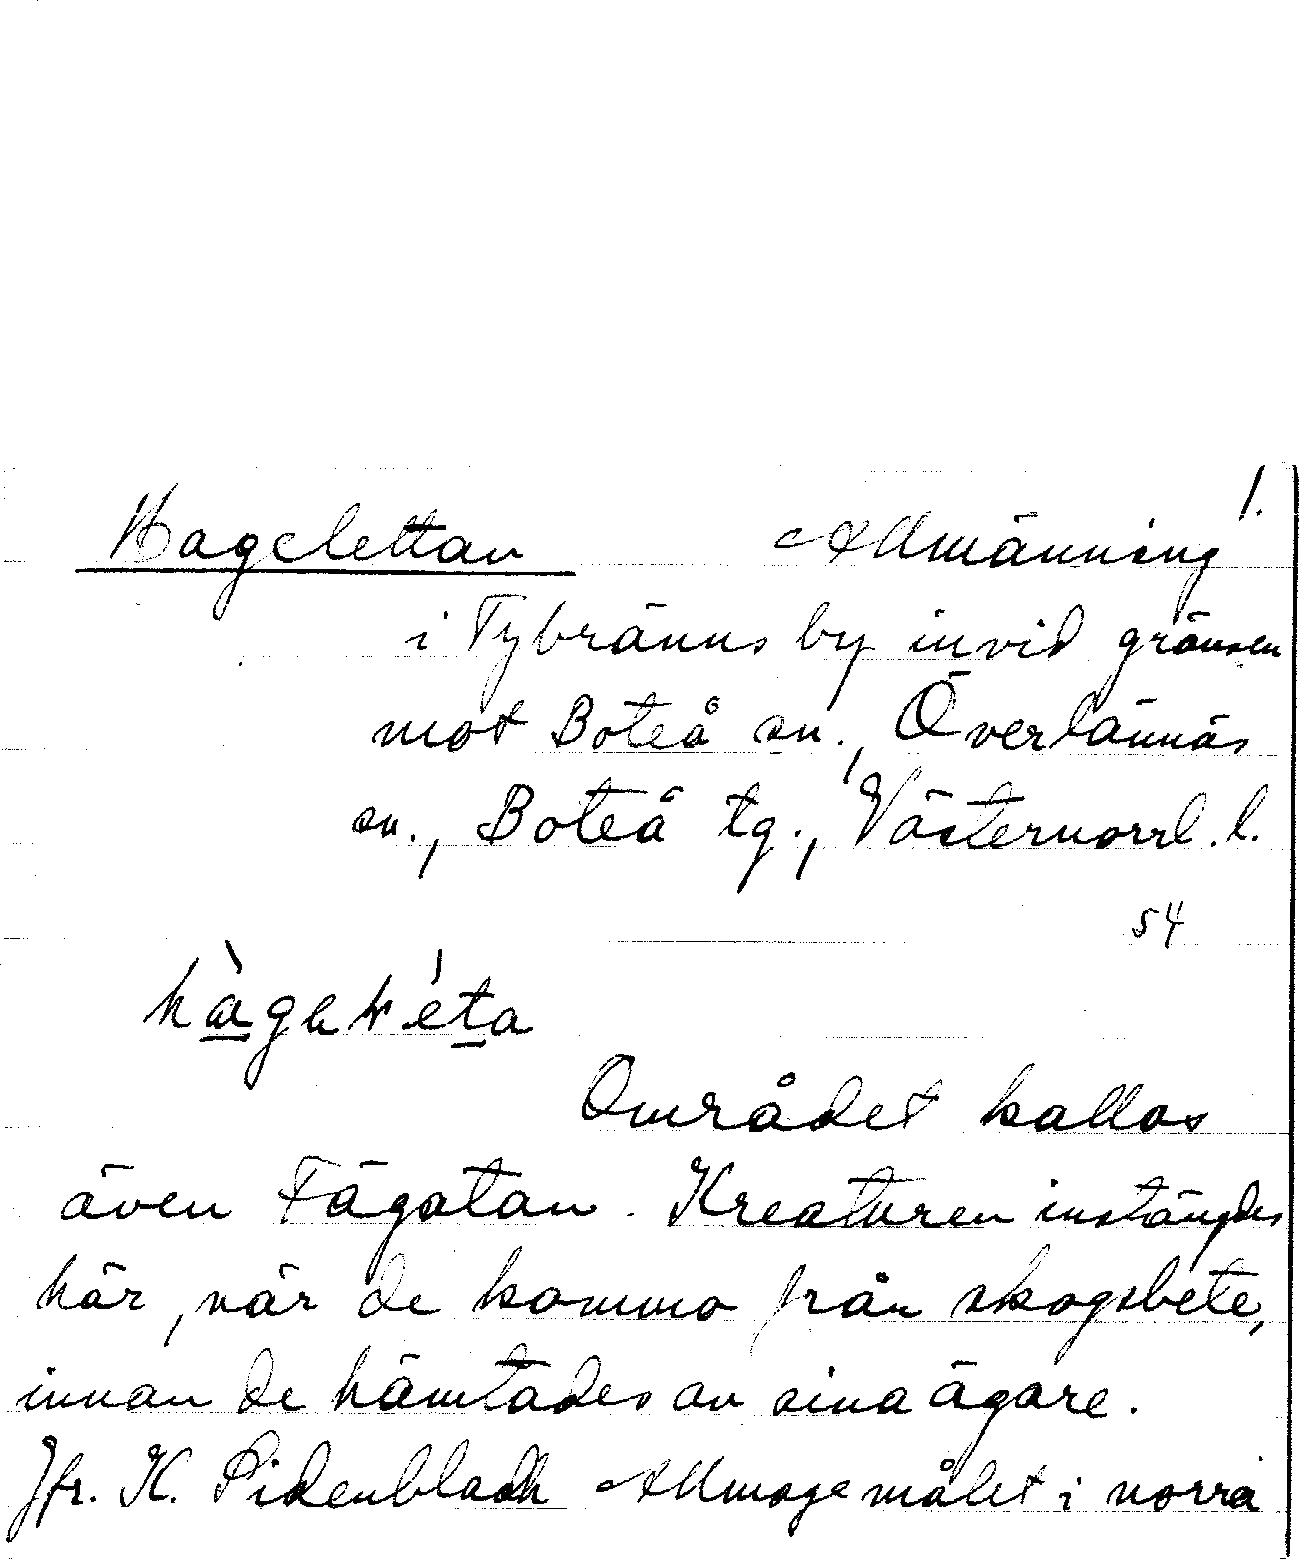 1.
Hageletten Allmänning
i Tybränns by invid gränsen
mot Boteå sn., Överlännäs
sn., Boteå tg., Västernorrl. l.
54
Området kallas
även Fägatan. Kreaturen instängdes
här, när de kommo från skogsbete,
innan de hämtades av sina ägare.
Jfr. K. Sidenbladh Allmogemålet i norra